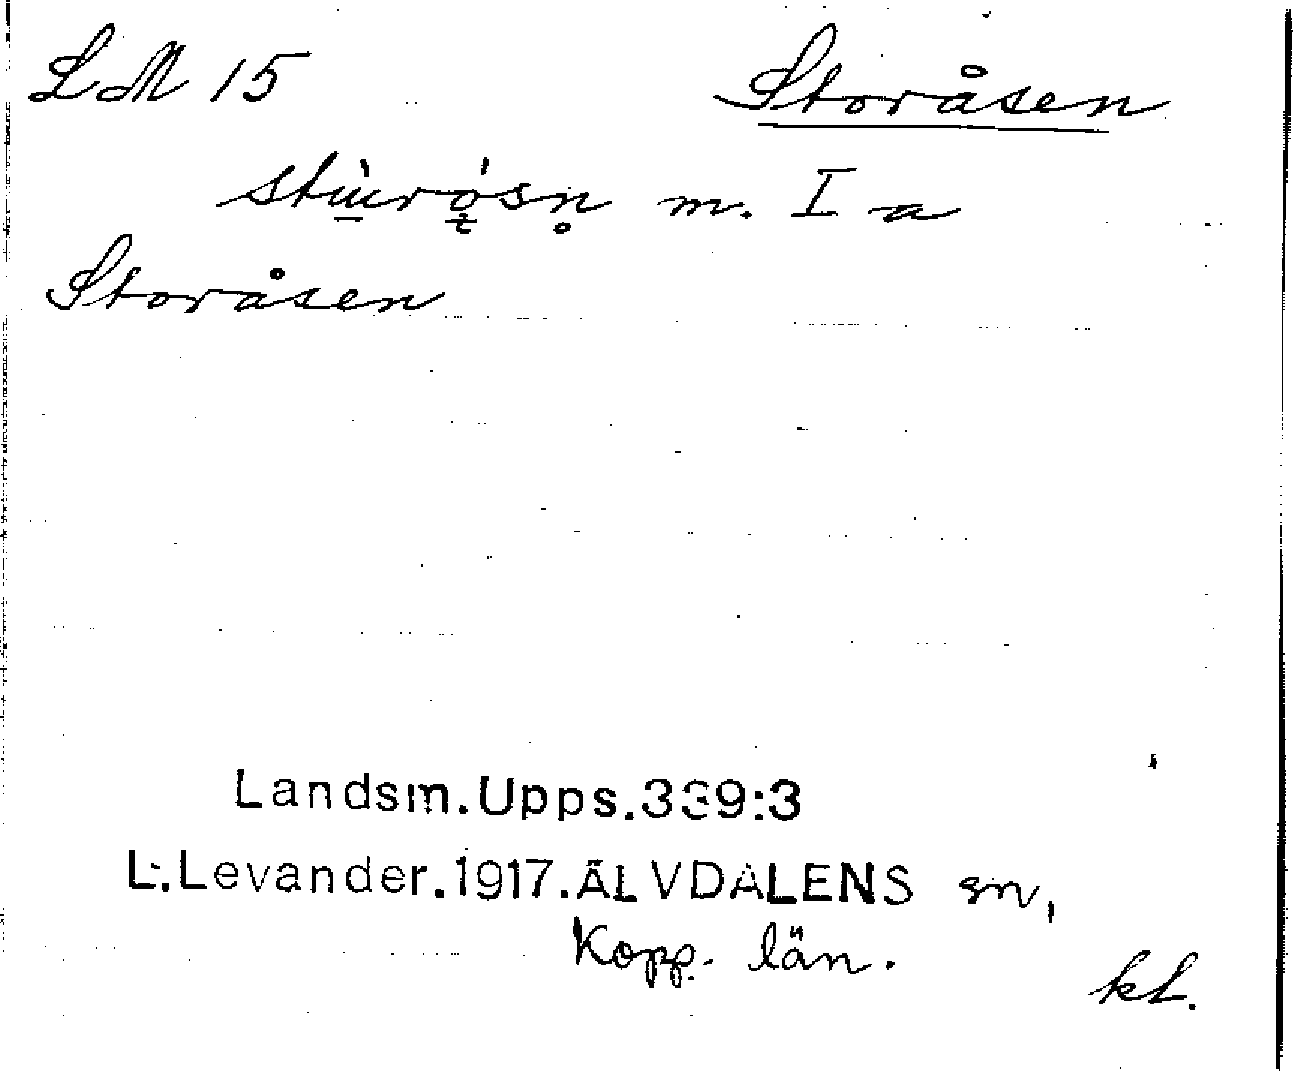 LM 15 Storåsen
stùrǫ́sn̥ m. I a
Storåsen
Landsm.Upps.339:3
L.Levander.1917.ÄLVDALENS sn,
Kopp. län.
kl.